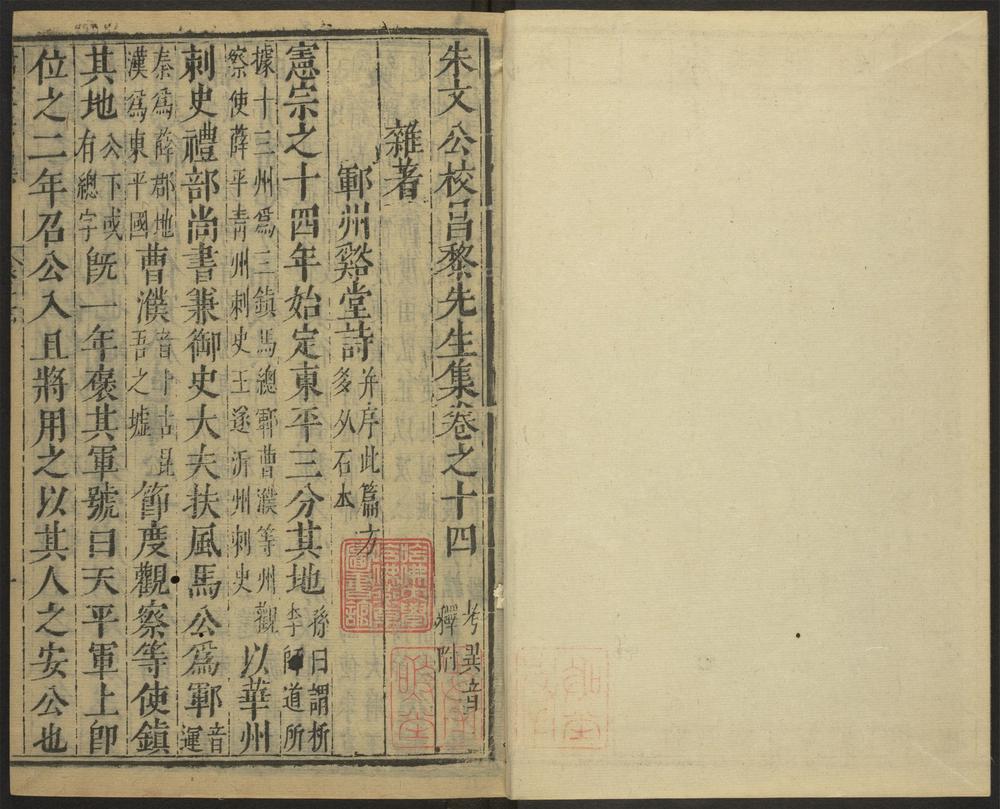 朱文公校昌黎先生集卷之十四 考異音釋附
雜著
鄆州谿堂詩 并序此篇方多从石本
憲宗之十四年始定東平三分其地 孫曰謂析李師道所
據十三州爲三鎮馬總鄆曹濮等州觀察使薛平青州刺史王遂沂州刺史 以華州
刺史禮部尚書兼御史大夫扶風馬公爲鄆 音運
秦爲薛郡地漢爲東平國 曹濮 音卜古昆吾之墟 節度觀察等使鎮
其地 公下或有總字 旣一年襃其軍號曰天平軍上卽
位之二年召公入且將用之以其人之安公也
哈佛大學哈佛燕京圖書館